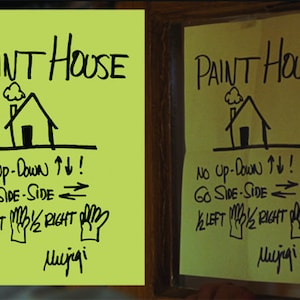 INT HOUSE
UP-DOWN ↑↓!
SIDE-SIDE ⇄
½ RIGHT
Miyagi
PAINT HOU
NO UP-DOWN ↑↓!
GO SIDE-SIDE ⇄
½ LEFT ½ RIGHT
Miyagi